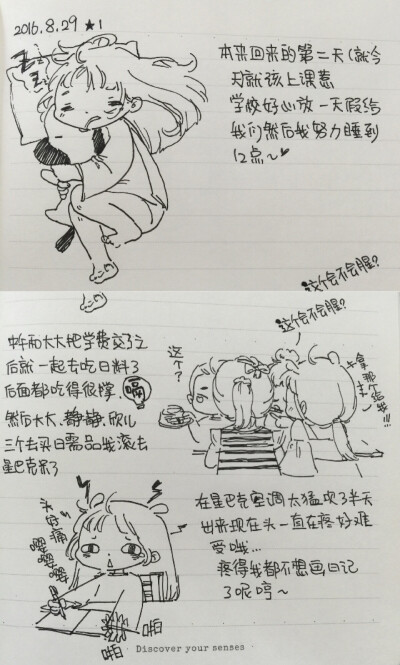 2016.8.29 ★1
zzz
本来回来的第二天(就今
天)就该上课惹
学校好心放一天假给
我们然后我努力睡到
12点~♥
这个会不会腥?
这个会不会腥?
中午两太太把学费交了之
后就一起去吃日料了
后面都吃得很撑. 嗝
然后太太.静静.欣儿
三个去买日需品我滚去
星巴克呆了
这个?
拿那个给我!!!
在星巴克空调太猛吹了半天
出来现在头一直在疼好难
受哦...
疼得我都不想画日记
了呢哼~
头好痛
嘤嘤
嘤嘤
嘤嘤
啪
啪
Discover your senses